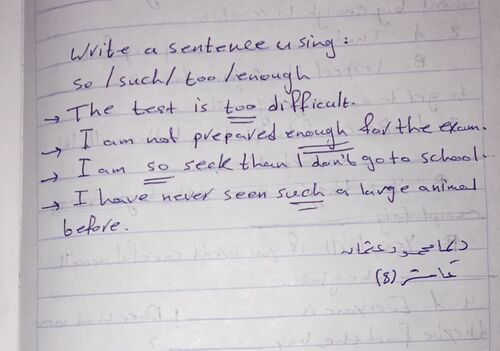 Write a sentence using:
so / such / too / enough
→ The test is too difficult.
→ I am not prepared enough for the exam.
→ I am so seek than I don't go to school.
→ I have never seen such a large animal
before.
محمود عثمان
عاشر (8)